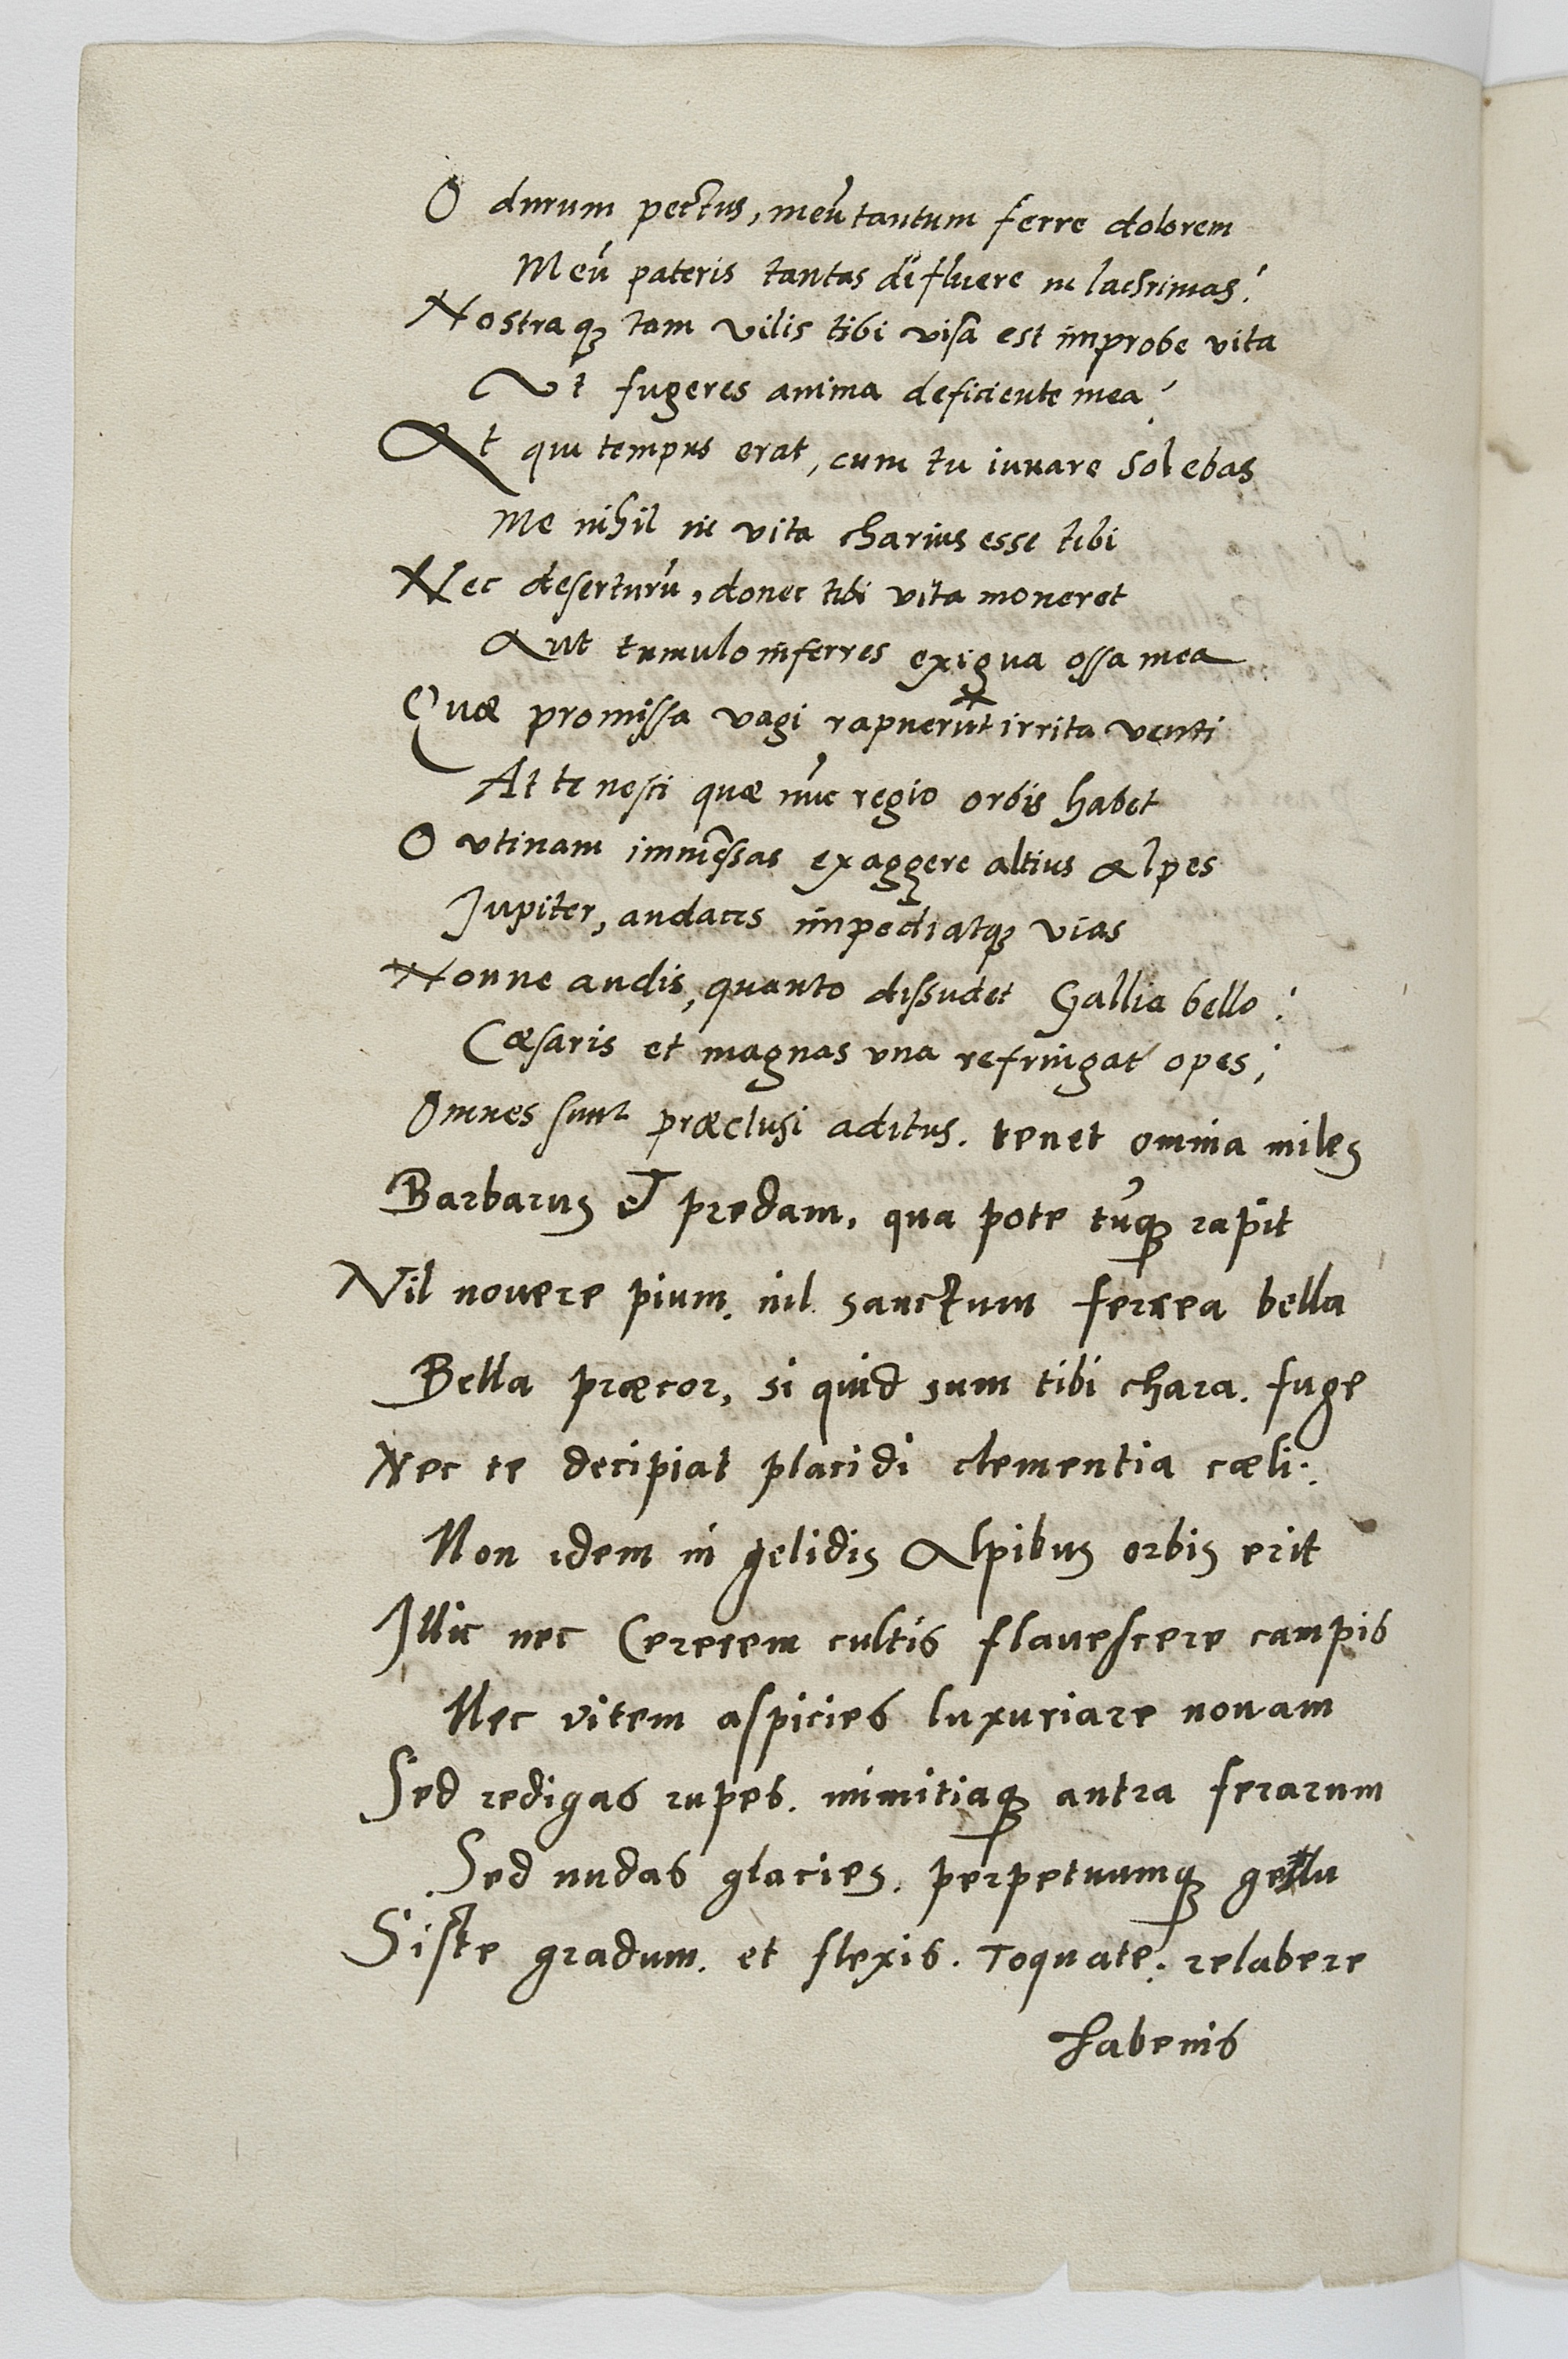 O durum pectus, meū tantum ferre dolorem
Meū pateris tantas difluere in lachrimas?
Nostraqꝫ tam vilis tibi visa est improbe vita
Vt fugeres anima deficiente mea?
At qui tempus erat, cum tu iurare solebas
Me nihil in vita charius esse tibi
Nec deserturū, donec tibi vita moneret
Aut tumulo inferres exigua ossa mea
Quæ promissa vagi rapuerūt irrita venti
At te nesci quæ nūc regio orbis habet
O vtinam immēssas exaggere altius Alpes
Jupiter, audaces impediatqꝫ vias
Nonne audis, quanto dissudet Gallia bello?
Cæsaris et magnas vna refringat opes;
Omnes sunt præclusi aditus. tenet omnia miles
Barbarus et predam, qua pote tūqꝫ rapit
Nil novere pium. nil sanctum ferrea bella
Bella præcor, si quid sum tibi chara. fuge
Nec te decipiat placidi clementia cæli:
Non idem in gelidis Alpibus orbis erit
Illic nec Cererem cultis flauescere campis
Nec vitem aspicies luxuriare nouam
Sed redigas rupes. inimitiaqꝫ antra ferarum
Sed nudas glacies. perpetuumqꝫ gellu
Siste gradum. et flexis. Toquate: relabere
habenis